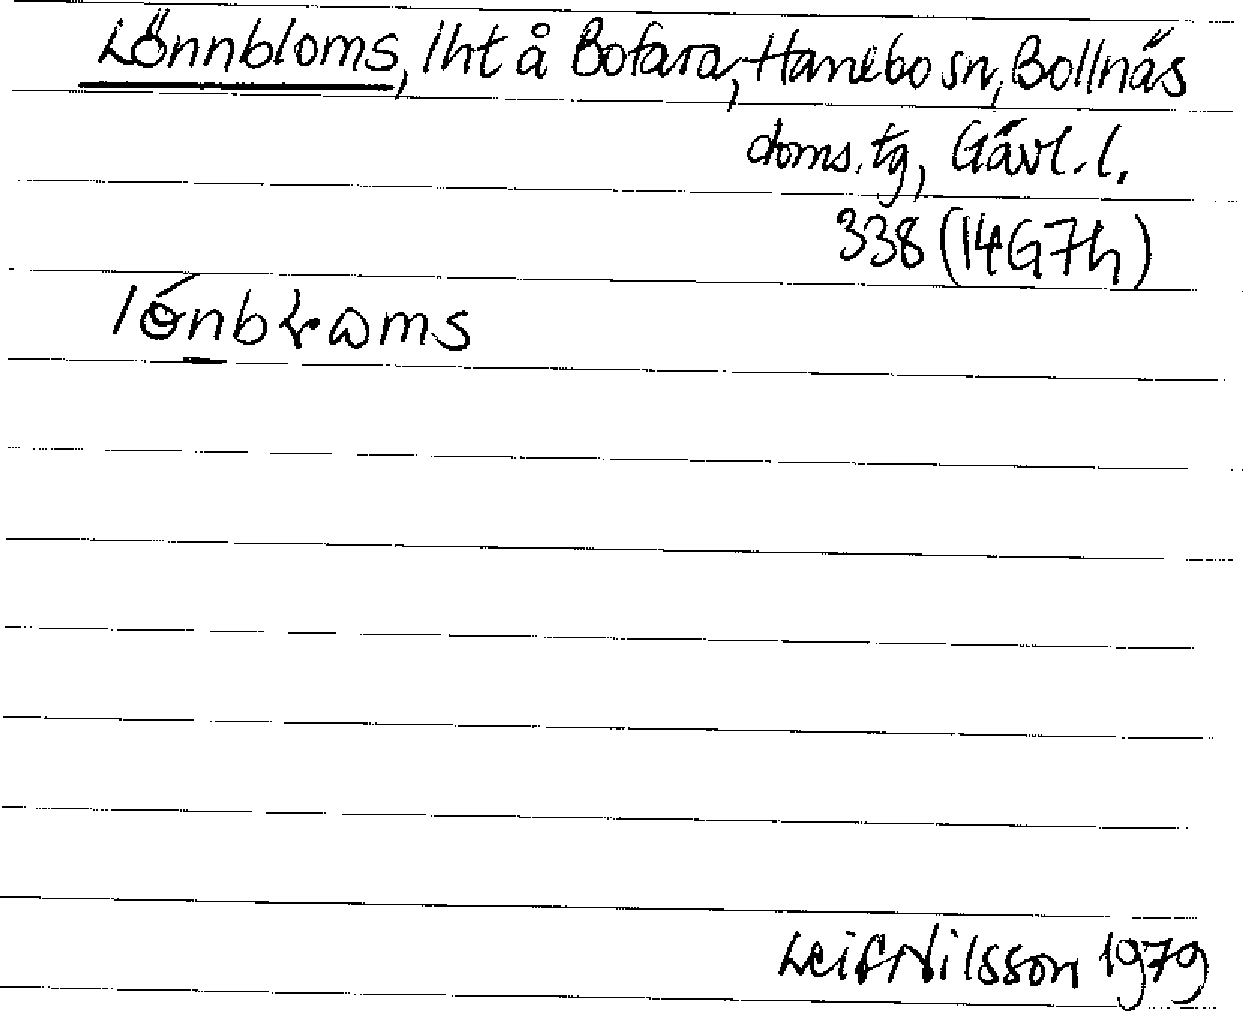 Lönnbloms, lht å Bofara, Hanebo sn, Bollnäs
doms.tg, Gävl.l.
338 (14G7h)
Leif Nilsson 1979